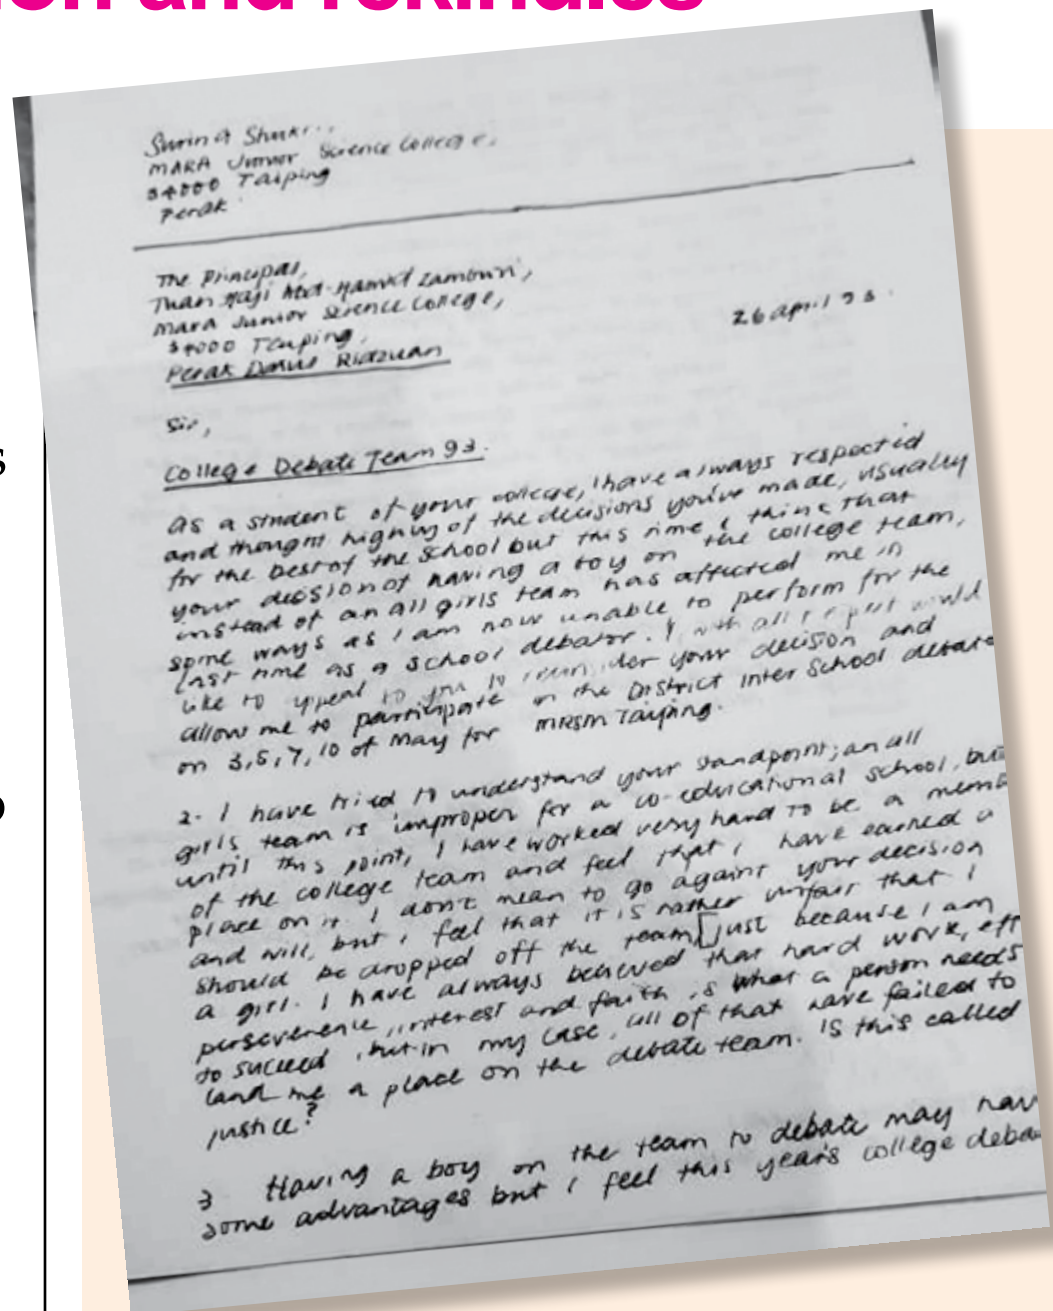 on and rekindles
s
o
Surin A Shukr..,
MARA Junior Science College,
34000 Taiping
Perak
The Principal,
Tuan Haji Abd. Hamid Zambwri,
Mara Junior Science College,
34000 Taiping,
Perak Darul Ridzuan
26 april 93.
Sir,
College Debate Team 93.
As a student of your college, I have always respected
and thought highly of the decisions you've made, usually
for the best of the school but this time I think that
your decision of having a boy on the college team,
instead of an all girls team has affected me in
some ways as I am now unable to perform for the
last time as a school debator. I with all respect would
like to appeal to you to reconsider your decision and
allow me to participate in the District Inter School debate
on 3,5,7,10 of May for MRSM Taiping.
2. I have tried to understand your standpoint; an all
girls team is improper for a co-educational school, but
until this point, I have worked very hard to be a memb
of the college team and feel that I have earned a
place on it. I don't mean to go against your decision
and will, but I feel that it is rather unfair that I
should be dropped off the team [just because I am
a girl. I have always believed that hard work, eff
perseverence, interest and faith is what a person needs
to succeed, but in my case, all of that have failed to
land me a place on the debate team. Is this called
justice?
3 Having a boy on the team to debate may hav
some advantages but I feel this year's college deba